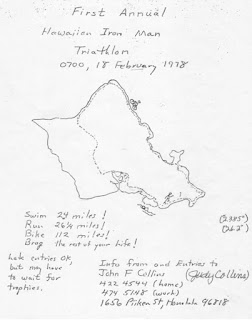 First Annual
Hawaiian Iron Man
Triathlon
0700, 18 February 1978
Swim 2.4 miles!
Run 26¼ miles!
Bike 112 miles!
Brag the rest of your life!
(2.385")
(26.2")
Late entries OK,
but may have
to wait for
trophies.
Info from and Entries to
John F Collins (Judy Collins)
422 4544 (home)
474 5148 (work)
Honolulu 96818